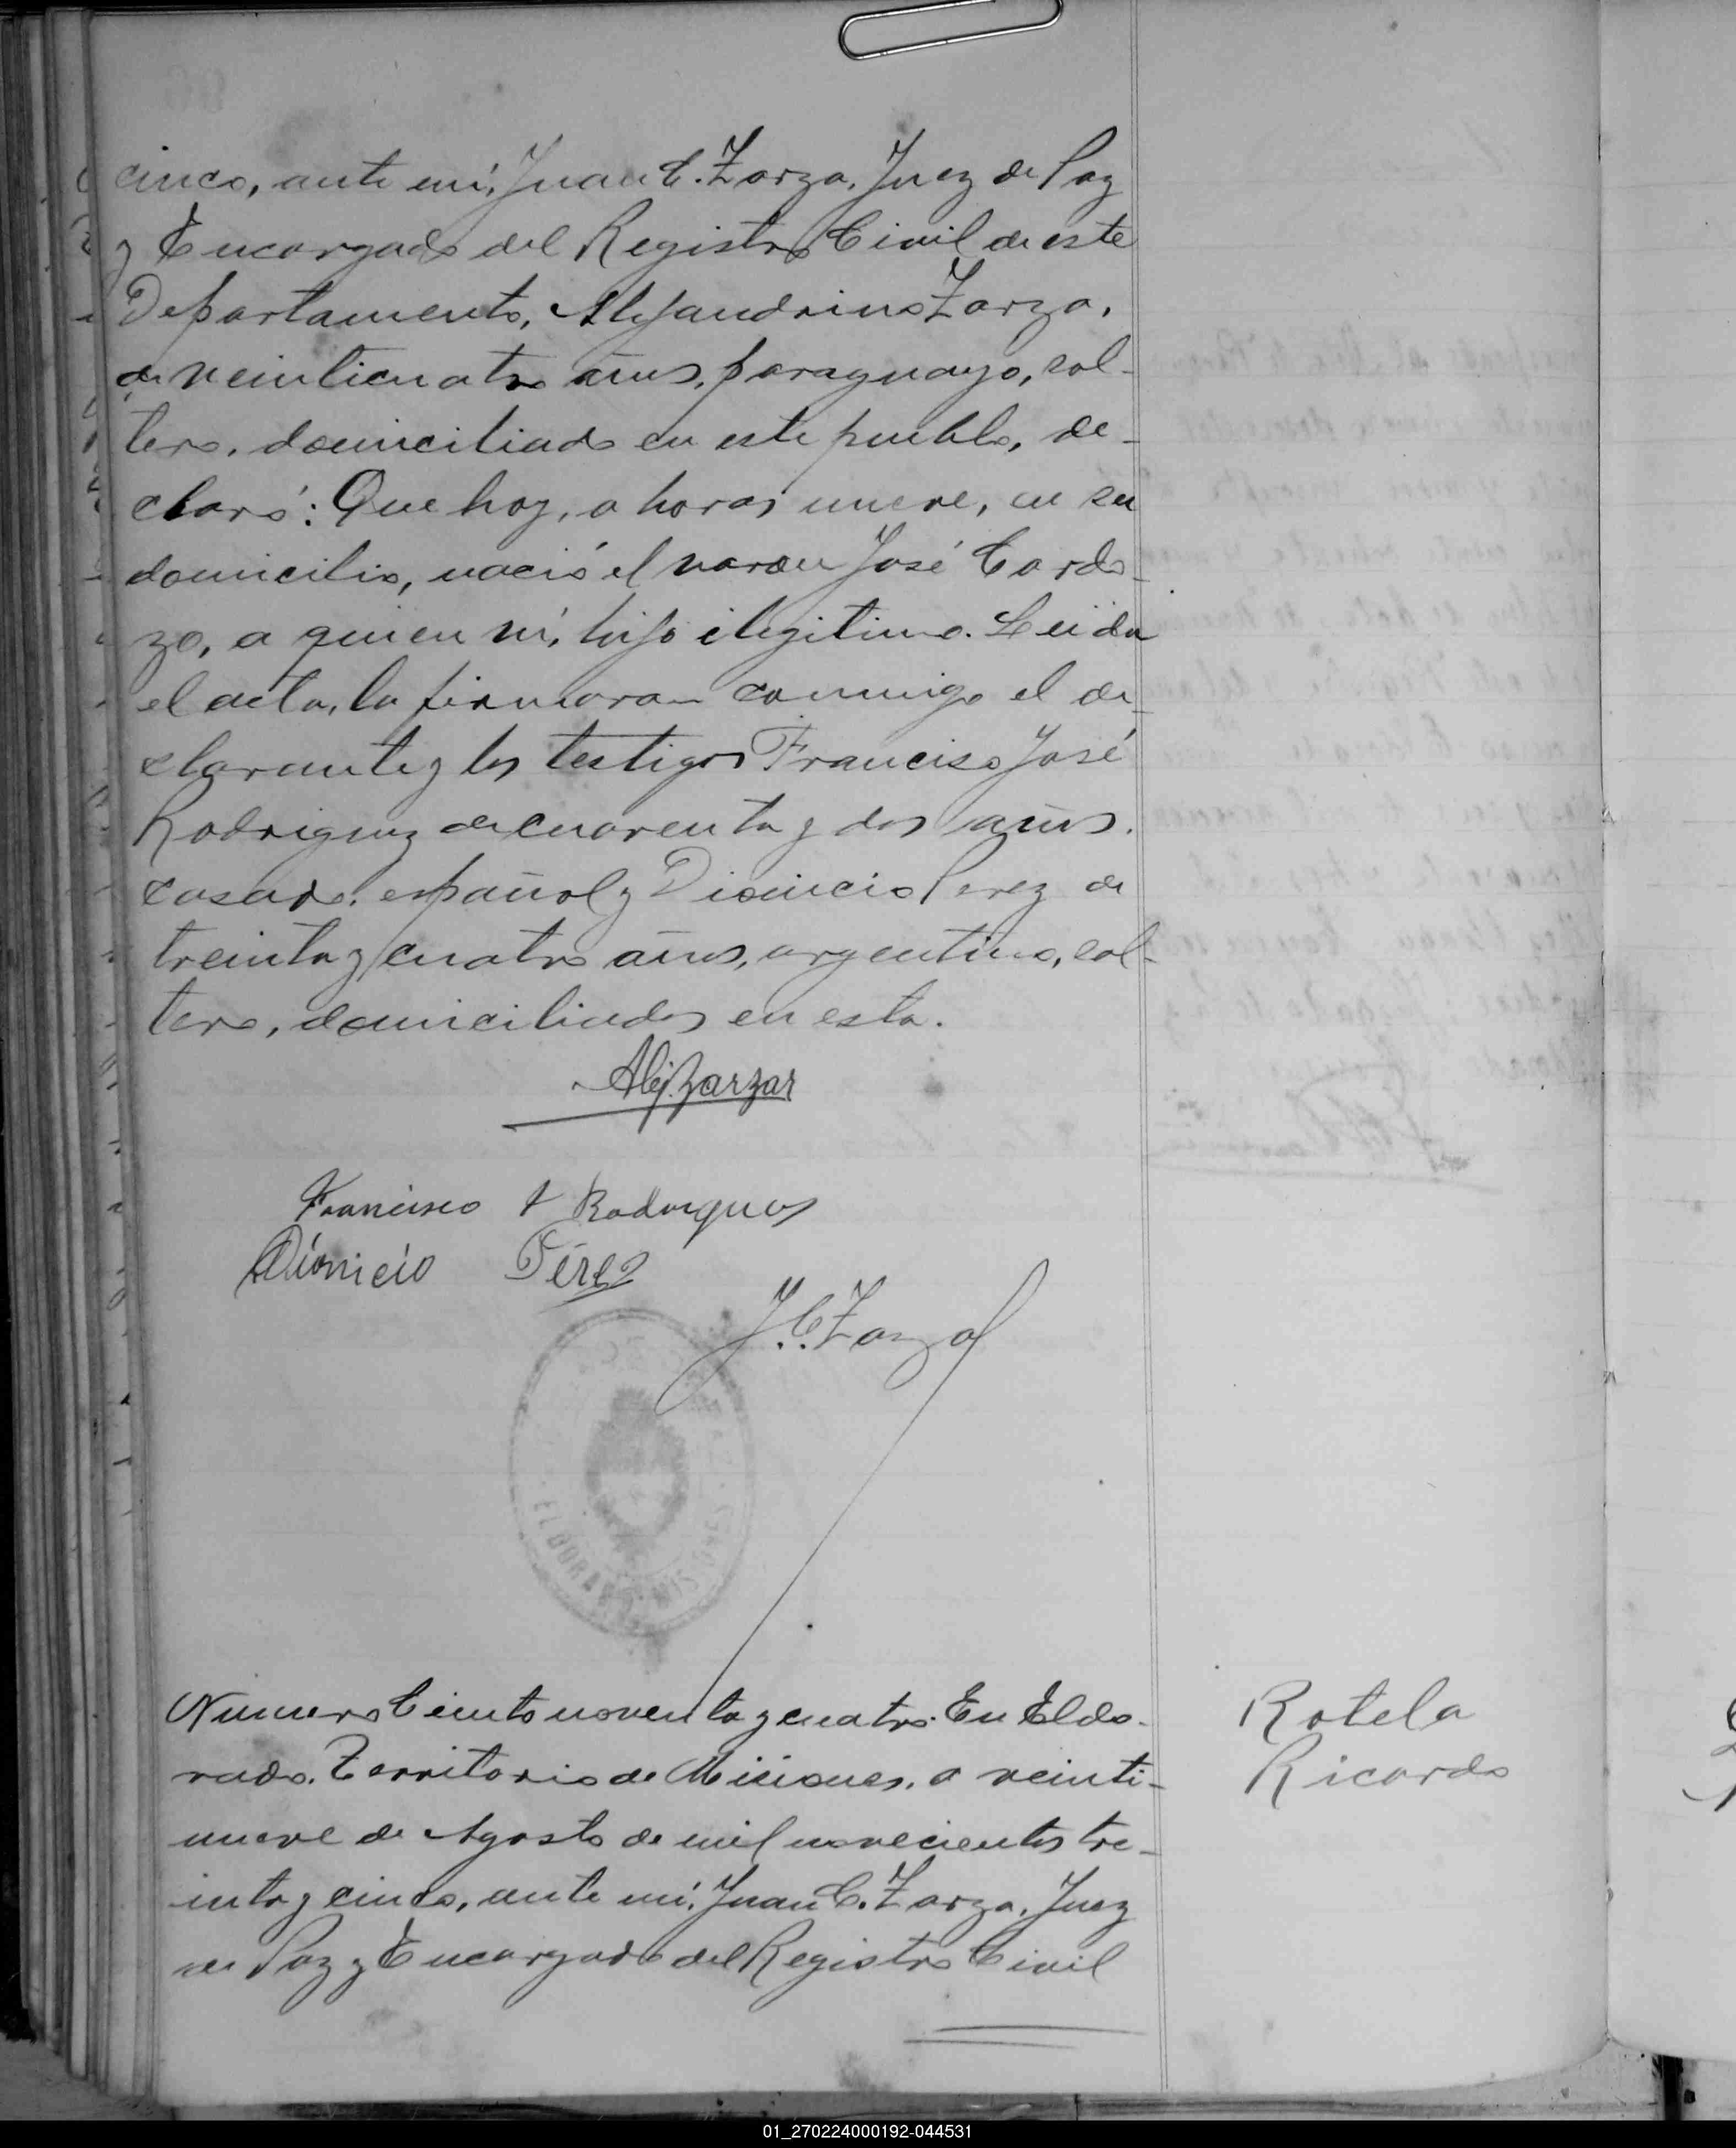 cinco, ante mí, Juan C. Zarza, Juez de Paz
y Encargado del Registro Civil de este
Departamento, Alejandrino Zarza,
de veinticuatro años, paraguayo, sol-
tero, domiciliado en este pueblo, de-
claró: Que hoy, a horas nueve, en su
domicilio, nació el varon José Cardo-
zo, a quien vi, hijo ilegitimo. Leida
el acta, la firmaron conmigo el de-
clarante y los testigos Francisco José
Rodriguez de cuarenta y dos años.
casado, español y Dionicio Perez de
treinta y cuatro años, argentino, sol-
tero, domiciliados en esta.
Alej. Zarzar
Francisco J Rodrigues
Dionicio Pérez
J.C. Zarza
EL DORADO MISIONES
Numero Ciento noventa y cuatro. En Eldo-
rado. Territorio de Misiones, a veinti-
nueve de Agosto de mil novecientos tre-
inta y cinco, ante mí, Juan C. Zarza, Juez
de Paz y Encargado del Registro Civil
Rotela
Ricardo
01_270224000192-044531